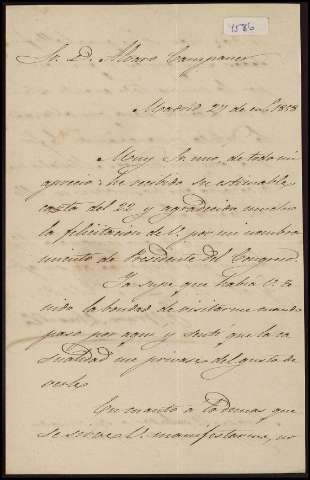 1586
Sr. D. Alvaro Campaner
Madrid 27 de en.º 1878
Muy Sr. mio, de todo mi
aprecio: he recibido su estimable
carta del 22 y agradezco mucho
la felicitacion de V. por mi nombra
miento de Presidente del Congreso.
Ya supe que habia V. te
nido la bondad de visitarme cuando
paso por aqui y sentí que la ca
sualidad me privase del gusto de
verle.
En cuanto a lo demas que
se sirve V. manifestarme, no